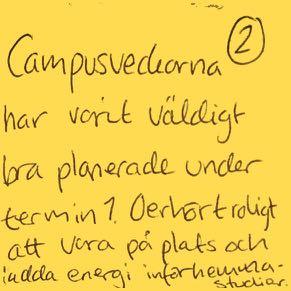 Campusveckorna ②
har varit väldigt
bra planerade under
termin 1. Oerhört roligt
att vara på plats och
ladda energi inför hemma-
studier.